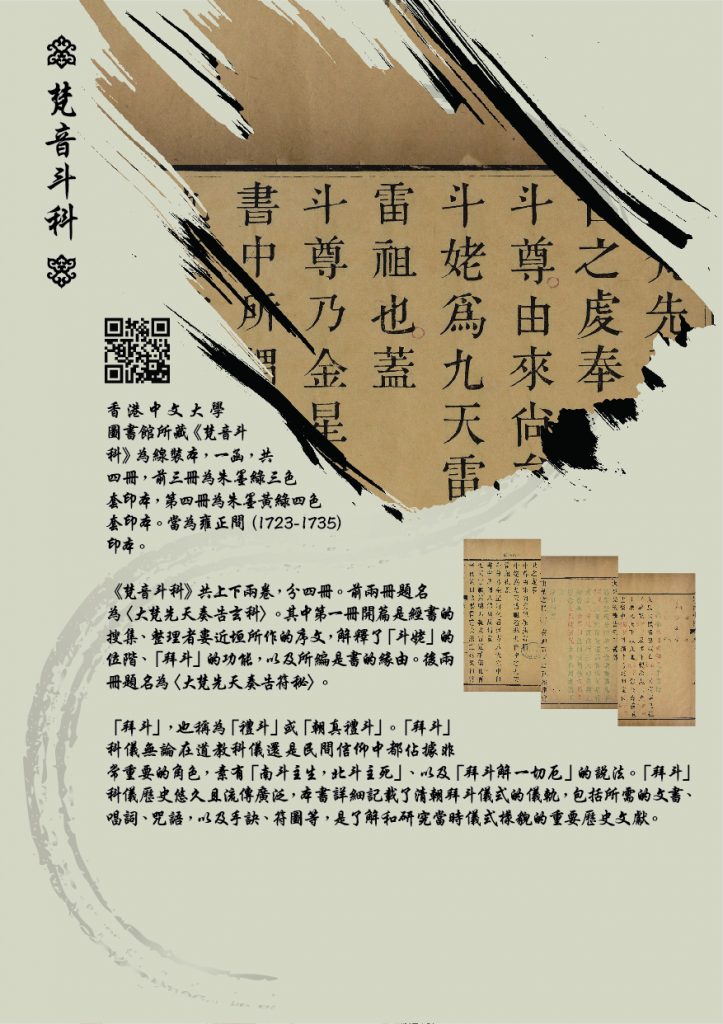 梵音斗科
先
之虔奉
斗尊由來尙
斗姥爲九天雷
雷祖也蓋
斗尊乃金星
書中所謂
香港中文大學
圖書館所藏《梵音斗
科》為線裝本，一函，共
四冊，前三冊為朱墨綠三色
套印本，第四冊為朱墨黃綠四色
套印本。當為雍正間 (1723-1735)
印本。
《梵音斗科》共上下兩卷，分四冊。前兩冊題名
為〈大梵先天奏告玄科〉。其中第一冊開篇是經書的
搜集、整理者婁近垣所作的序文，解釋了「斗姥」的
位階、「拜斗」的功能，以及所編是書的緣由。後兩
冊題名為〈大梵先天奏告符秘〉。
「拜斗」，也稱為「禮斗」或「朝真禮斗」。「拜斗」
科儀無論在道教科儀還是民間信仰中都佔據非
常重要的角色，素有「南斗主生，北斗主死」、以及「拜斗解一切厄」的說法。「拜斗」
科儀歷史悠久且流傳廣泛，本書詳細記載了清朝拜斗儀式的儀軌，包括所需的文書、
唱詞、咒語，以及手訣、符圖等，是了解和研究當時儀式樣貌的重要歷史文獻。